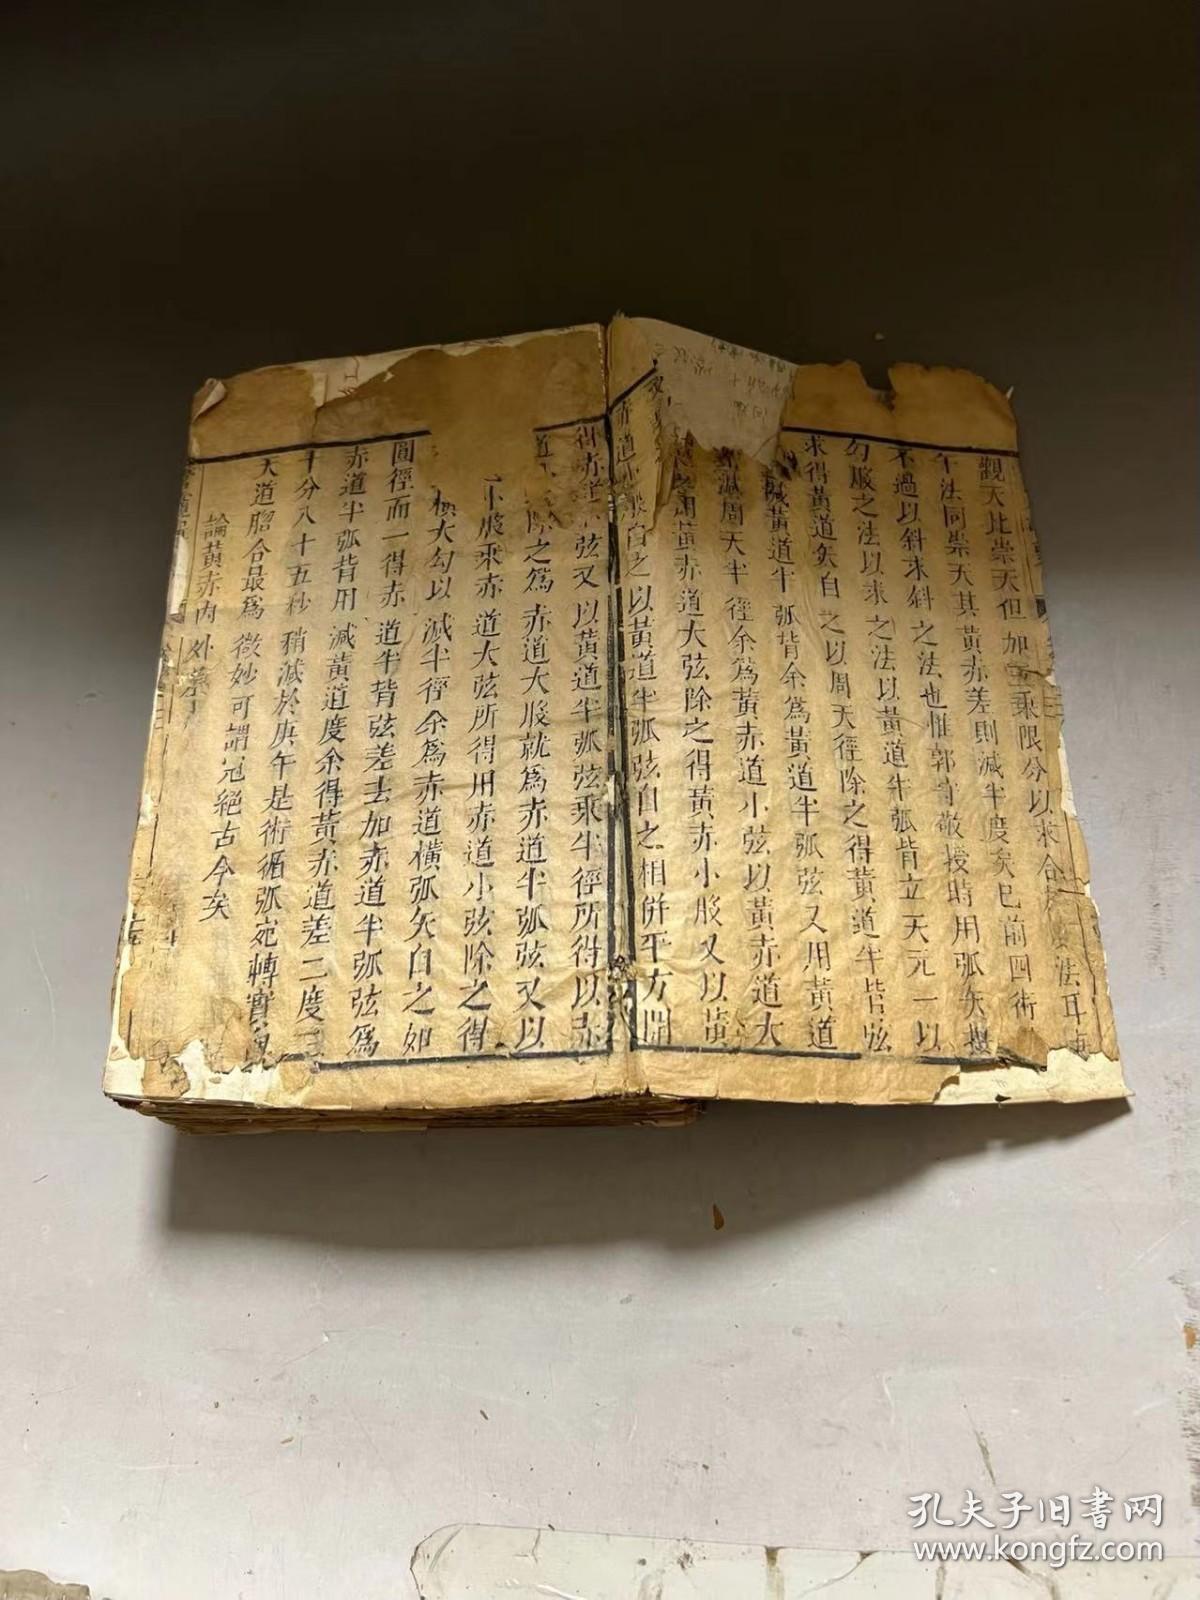 觀天比崇天但加
乘限分以求合
法耳
午法同崇天其黃赤差則減半度矣已前四術
不過以斜求斜之法也惟郭守敬授時用弧矢
勾股之法以求之法以黃道半弧背立天元一以
求得黃道矢自之以周天徑除之得黃道半背弦
減黃道半弧背余爲黃道半弧弦又用黃道
減周天半徑余爲黃赤道小弦以黃赤道大
黃赤道大弦除之得黃赤小股又以黃
赤道小股自之以黃道半弧弦自之相併平方開
得赤道小弦又以黃道半弧弦乘半徑所得以赤
除之爲赤道大股就爲赤道半弧弦又以
小股乘赤道大弦所得用赤道小弦除之得
橫大勾以減半徑余爲赤道橫弧矢自之如
圓徑而一得赤道半背弦差去加赤道半弧弦爲
赤道半弧背用減黃道度余得黃赤道差二度
十分八十五秒稍減於庚午是術循弧宛轉實與
天道脗合最爲微妙可謂冠絕古今矣
論黃赤內外
孔夫子旧书网
www.kongfz.com